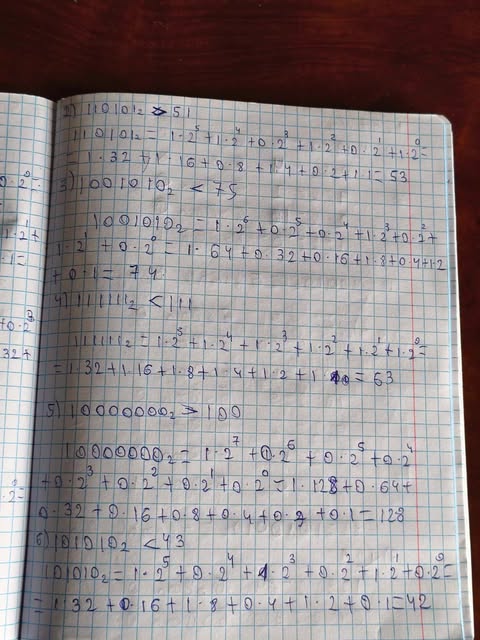 2) 110101₂ > 51
110101₂ = 1·2⁵+1·2⁴+0·2³+1·2²+0·2¹+1·2⁰=
= 1·32+1·16+0·8+1·4+0·2+1·1=53
3) 1001010₂ < 75
1001010₂ = 1·2⁶+0·2⁵+0·2⁴+1·2³+0·2²+
1·2¹+0·2⁰ = 1·64+0·32+0·16+1·8+0·4+1·2
+0·1 = 74
4) 111111₂ < 111
111111₂ = 1·2⁵+1·2⁴+1·2³+1·2²+1·2¹+1·2⁰=
= 1·32+1·16+1·8+1·4+1·2+1·10=63
5) 10000000₂ > 100
10000000₂ = 1·2⁷+0·2⁶+0·2⁵+0·2⁴
+0·2³+0·2²+0·2¹+0·2⁰=1·128+0·64+
0·32+0·16+0·8+0·4+0·2+0·1=128
6) 101010₂ < 43
101010₂=1·2⁵+0·2⁴+1·2³+0·2²+1·2¹+0·2⁰=
= 1·32+0·16+1·8+0·4+1·2+0·1=42